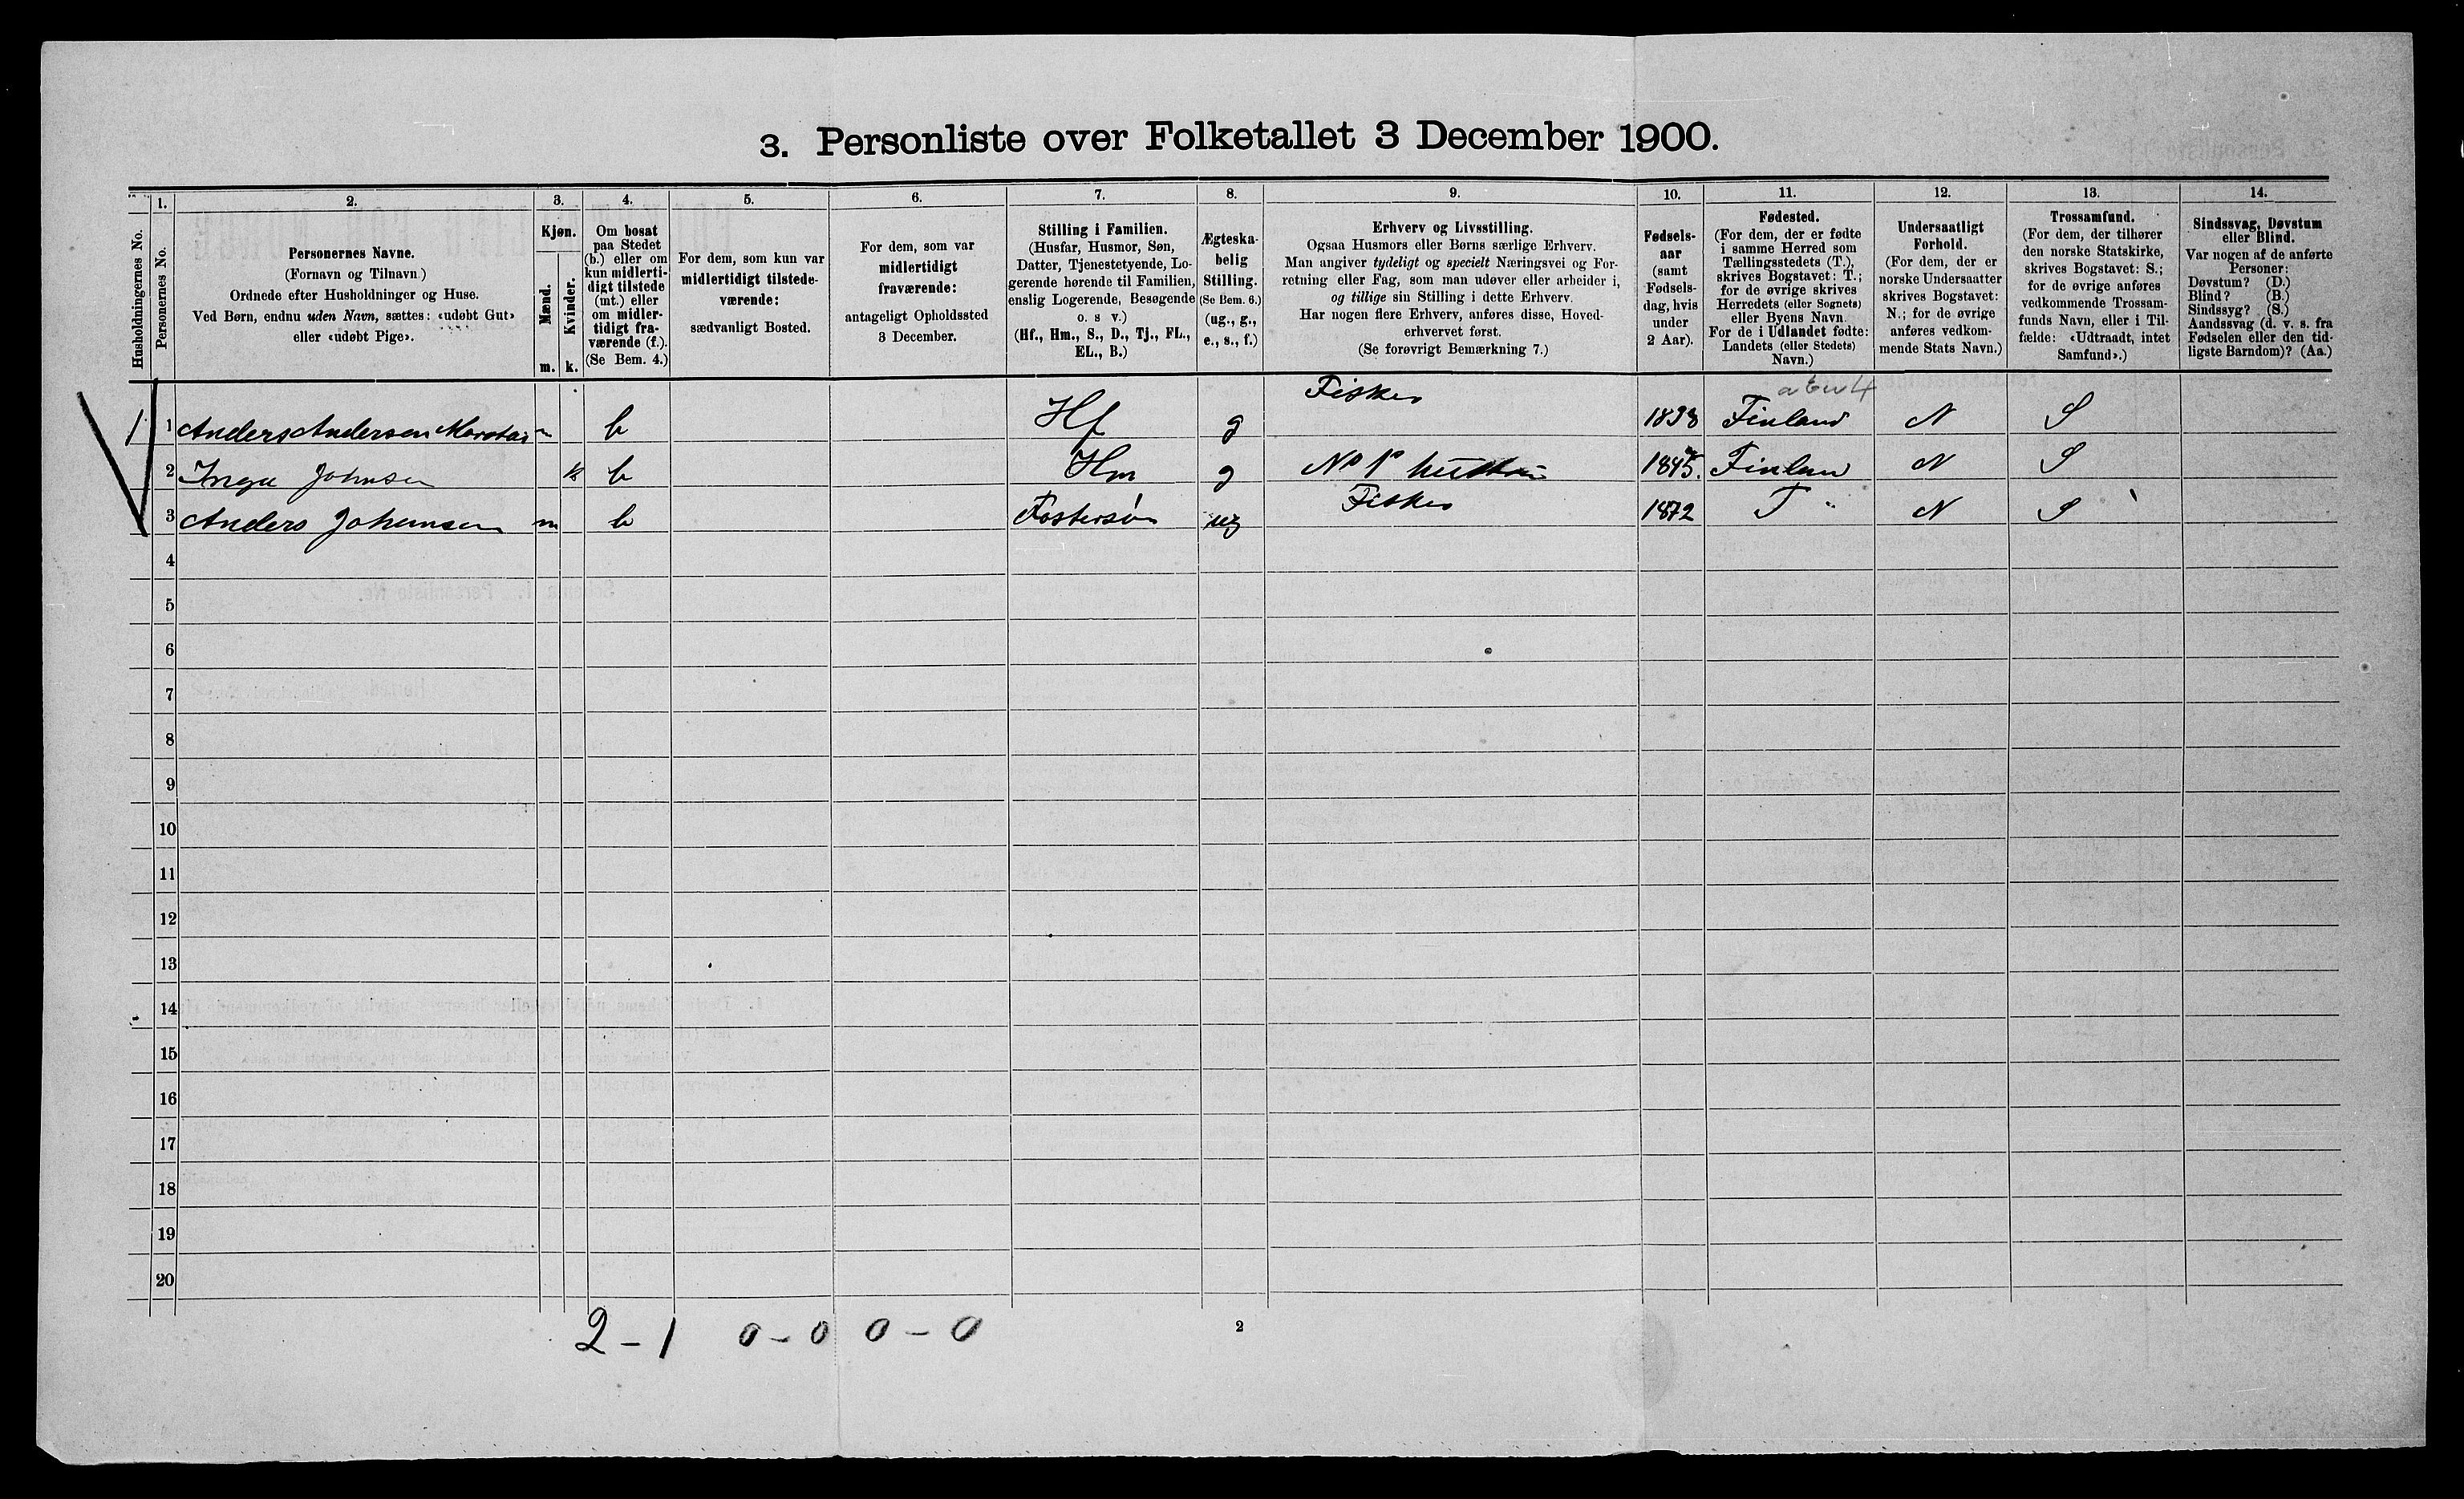 3. Personliste over Folketallet 3 December 1900.
1. 2. 3. 4. 5. 6. 7. 8. 9. 10. 11. 12. 13. 14.
Husholdningernes No.
Personernes No.
Personernes Navne.
(Fornavn og Tilnavn)
Ordnede efter Husholdninger og Huse.
Ved Børn, endnu uden Navn, sættes: «udøbt Gut»
eller «udøbt Pige».
Kjøn.
Mænd.
Kvinder.
m. k.
Om bosat
paa Stedet
(b.) eller om
kun midlerti-
digt tilstede
(mt.) eller
om midler-
tidigt fra-
værende (f.).
(Se Bem. 4.)
For dem, som kun var
midlertidigt tilstede-
værende:
sædvanligt Bosted.
For dem, som var
midlertidigt
fraværende:
antageligt Opholdssted
3 December.
Stilling i Familien.
(Husfar, Husmor, Søn,
Datter, Tjenestetyende, Lo-
gerende hørende til Familien,
enslig Logerende, Besøgende
o. s v.)
(Hf., Hm., S., D., Tj., FL.,
EL., B.)
Ægteska-
belig
Stilling.
(Se Bem. 6.)
(ug., g.,
e., s., f.)
Erhverv og Livsstilling.
Ogsaa Husmors eller Børns særlige Erhverv.
Man angiver tydeligt og specielt Næringsvei og For-
retning eller Fag, som man udøver eller arbeider i,
og tillige sin Stilling i dette Erhverv.
Har nogen flere Erhverv, anføres disse, Hoved-
erhvervet først.
(Se forøvrigt Bemærkning 7.)
Fødsels-
aar
(samt
Fødsels-
dag, hvis
under
2 Aar).
Fødested.
(For dem, der er fødte
i samme Herred som
Tællingsstedets (T.),
skrives Bogstavet: T.;
for de øvrige skrives
Herredets (eller Sognets)
eller Byens Navn.
For de i Udlandet fødte:
Landets (eller Stedets)
Navn.)
Undersaatligt
Forhold.
(For dem, der er
norske Undersaatter
skrives Bogstavet:
N.; for de øvrige
anføres vedkom-
mende Stats Navn.)
Trossamfund.
(For dem, der tilhører
den norske Statskirke,
skrives Bogstavet: S.;
for de øvrige anføres
vedkommende Trossam-
funds Navn, eller i Til-
fælde: «Udtraadt, intet
Samfund».)
Sindssvag, Døvstum
eller Blind.
Var nogen af de anførte
Personer:
Døvstum? (D.)
Blind? (B.)
Sindssyg? (S.)
Aandssvag (d. v. s. fra
Fødselen eller den tid-
ligste Barndom)? (Aa.)
1 1 Anders Andersen m b Hf g Fisker Finland N S
2 Inga Johnsen k b Hm g 1845. Finlan N S
3 Anders Johansen m b Fostersøn ug Fisker 1872 T N S
4
5
6
7
8
9
10
11
12
13
14
15
16
17
18
19
20
2 - 1 0 - 0 0 - 0
2